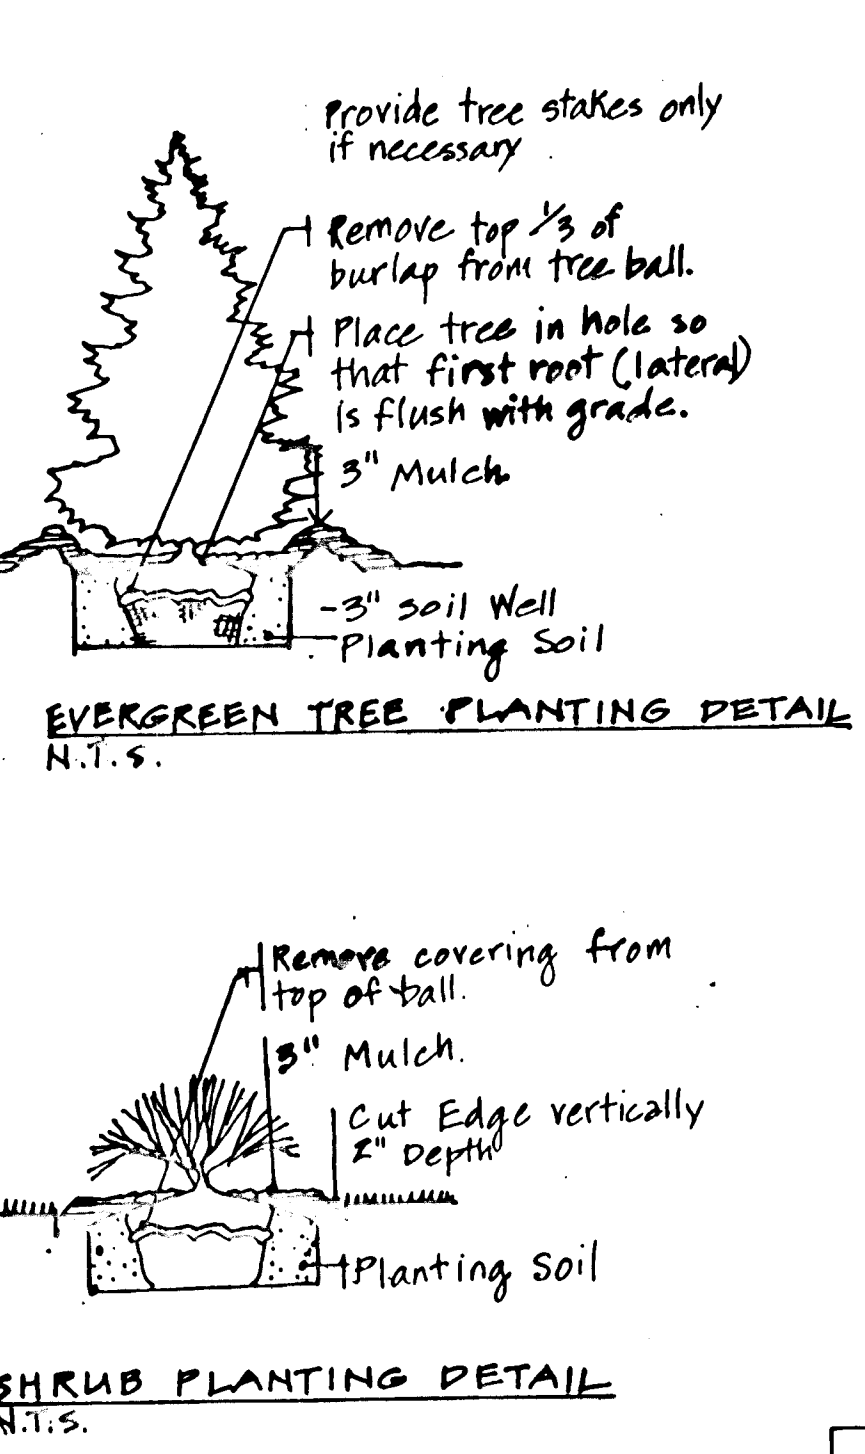 Provide tree stakes only
if necessary
Remove top 1/3 of
burlap from tree ball.
Place tree in hole so
that first root (lateral)
is flush with grade.
3" Mulch
-3" soil Well
Planting Soil
EVERGREEN TREE PLANTING DETAIL
N.T.S.
Remove covering from
top of ball.
3" Mulch.
Cut Edge vertically
2" Depth
Planting Soil
SHRUB PLANTING DETAIL
N.T.S.